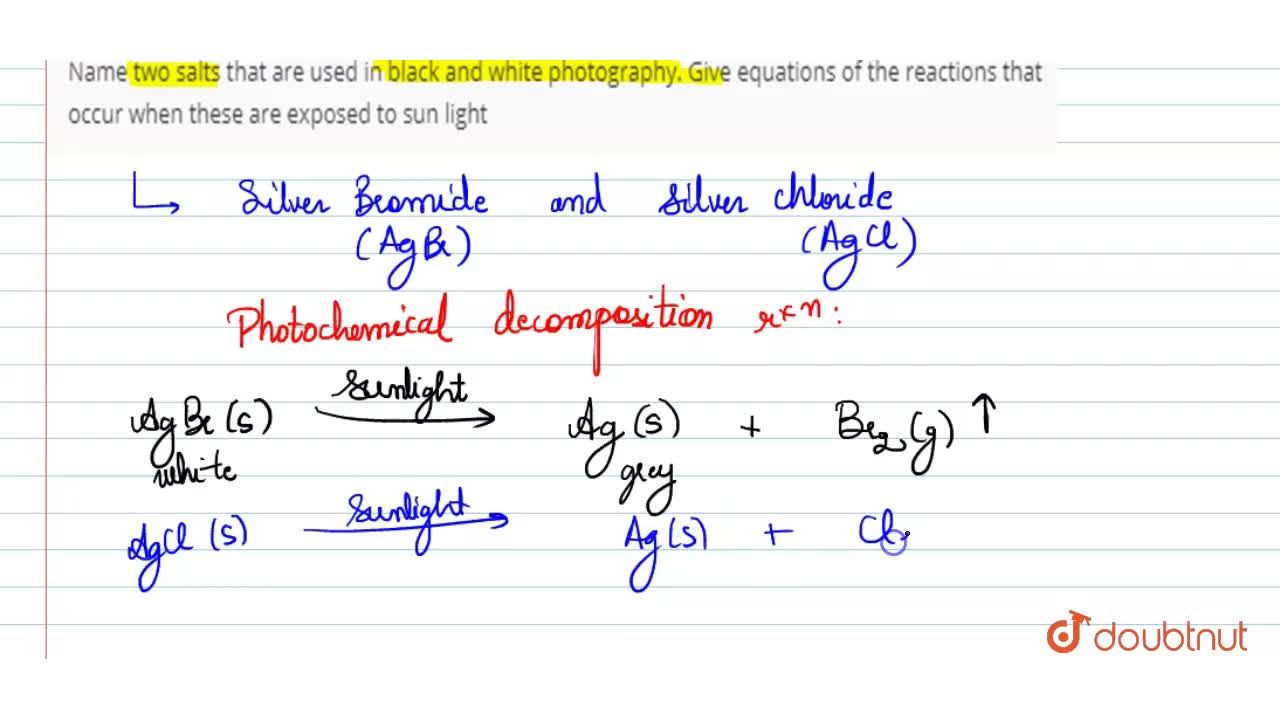 Name two salts that are used in black and white photography. Give equations of the reactions that
occur when these are exposed to sun light
Silver Bromide and silver chloride
(AgBr) (AgCl)
Photochemical decomposition rxn:
AgBr(s) Sunlight Ag(s) + Br₂(g) ↑
white grey
AgCl (s) Sunlight Ag(s) + Cl
doubtnut